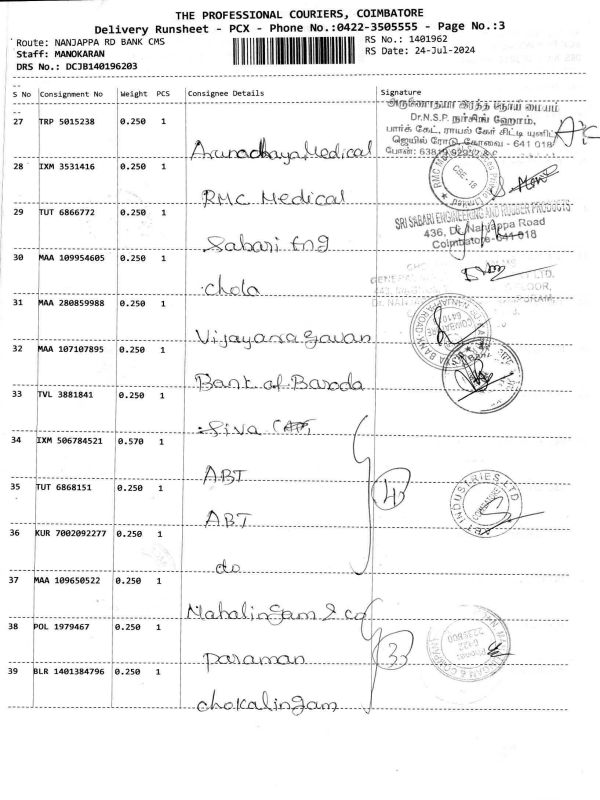 THE PROFESSIONAL COURIERS, COIMBATORE
Delivery Runsheet - PCX - Phone No.:0422-3505555 - Page No.:3
Route: NANJAPPA RD BANK CMS
RS No.: 1401962
Staff: MANOKARAN
RS Date: 24-Jul-2024
DRS No.: DCJB140196203
S No Consignment No Weight PCS Consignee Details Signature
27 TRP 5015238 0.250 1
Dr.N.S.P. நர்சிங் ஹோம்,
பார்க் கேட், ராயல் கேர் சிட்டி யுனிட்
ஜெயில் ரோடு, கோவை - 641 018
Arunadhaya Medical
28 IXM 3531416 0.250 1
RMC Medical
29 TUT 6866772 0.250 1
SRI SABARI ENGINEERING AND RUBBER PRODUCTS
436, Dr. Nanjappa Road
Coimbatore-641 018
Sabari Eng
30 MAA 109954605 0.250 1
chola
31 MAA 280859988 0.250 1
Vijayana gavan
32 MAA 107107895 0.250 1
Bank of Baroda
33 TVL 3881841 0.250 1
Siva
34 IXM 506784521 0.570 1
ABT
4
35 TUT 6868151 0.250 1
ABT INDUSTRIES LTD
ABT
36 KUR 7002092277 0.250 1
do
37 MAA 109650522 0.250 1
Mahalingam & co
38 POL 1979467 0.250 1
3
Paraman
39 BLR 1401384796 0.250 1
chokalingam